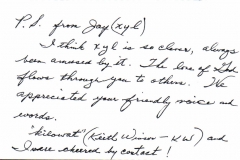 P.S. from Jay (xyl)
I think xyl is so clever, always
been amused by it. The love of God
flows through you to others. We
appreciated your friendly voices and
words.
"kilowat" (Keith Winson - KW) and
I were cheered by contact!